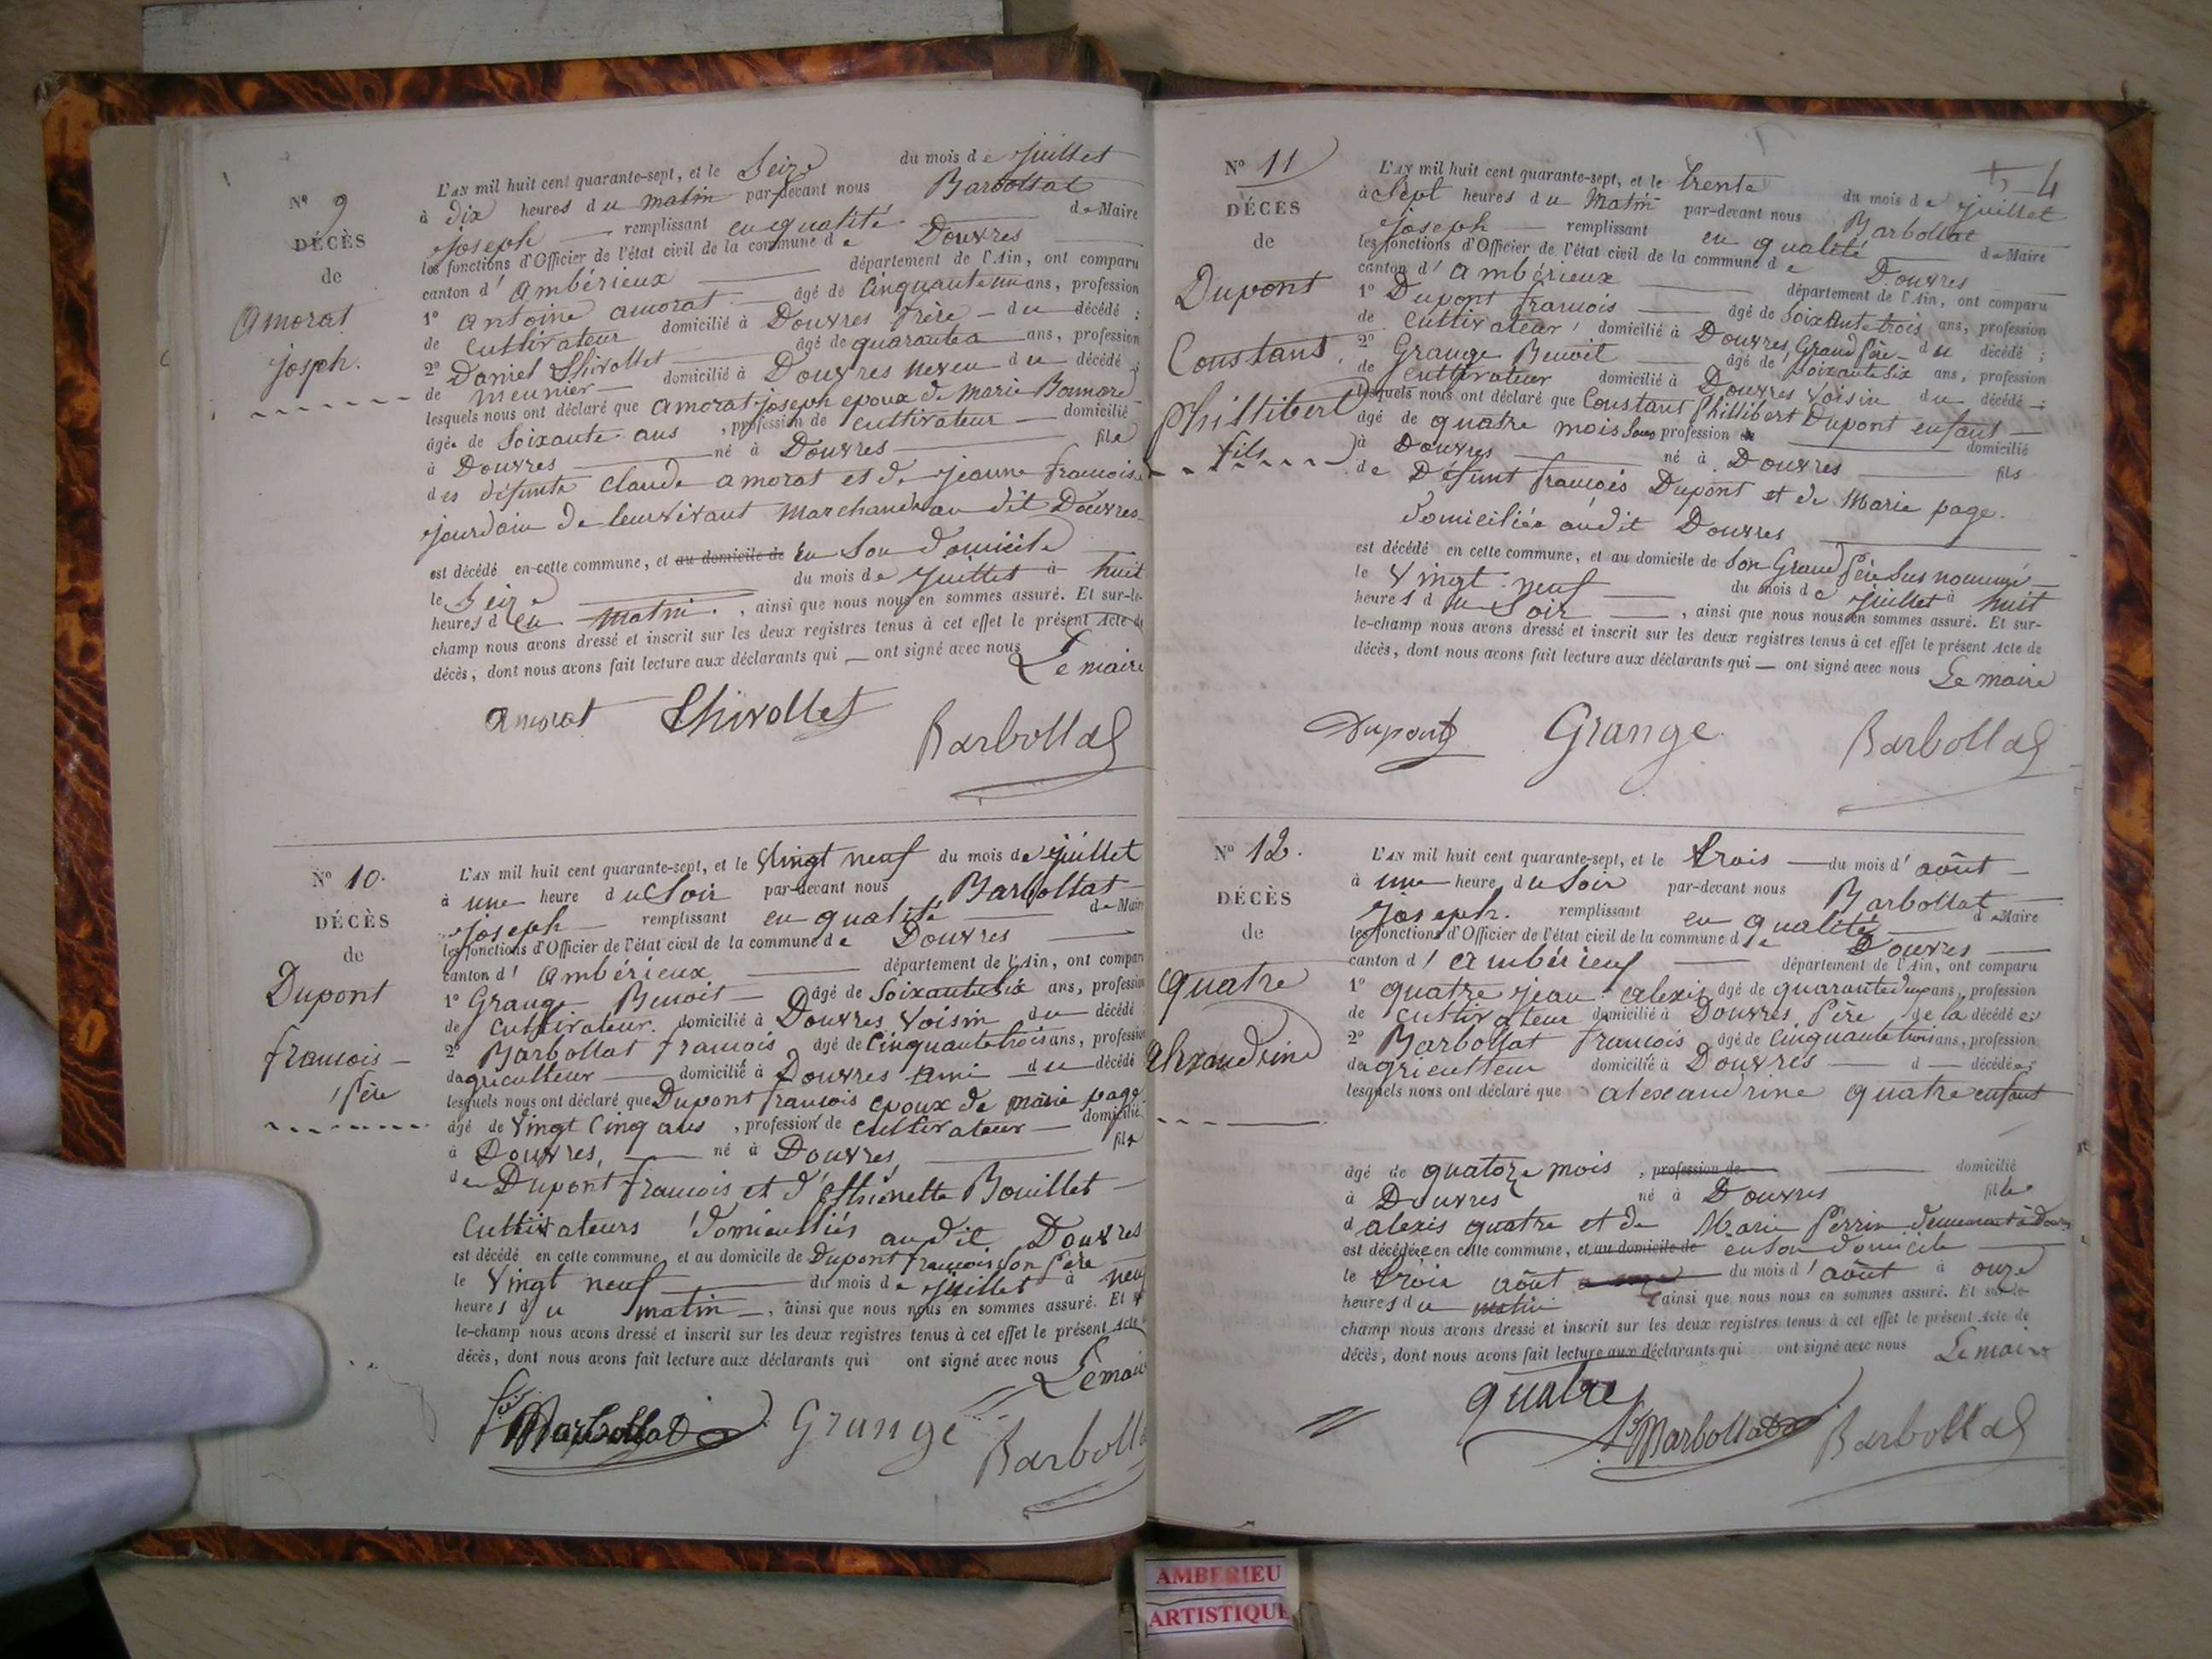 Nº 9
DÉCÈS
de
Amorat
joseph.
L'AN mil huit cent quarante-sept, et le Seize du mois de juillet
à dix heures du matin par-devant nous Barbollat
joseph remplissant en qualité de Maire
les fonctions d'Officier de l'état civil de la commune de Douvres
canton d'Ambérieux département de l'Ain, ont comparu
1º Antoine amorat âgé de Cinquante un ans, profession
de Cultivateur domicilié à Douvres frère du décédé ;
2º Daniel Chivollet âgé de quarante ans, profession
de meunier domicilié à Douvres neveu du décédé ;
lesquels nous ont déclaré que Amorat joseph epoux de Marie Bonnore
âgée de Soixante ans , profession de Cultivateur domicilié
à Douvres né à Douvres fils
des défunts Claude amorat et de jeanne francoise
jourdain de leur vivant Marchands au dit Douvres
est décédé en cette commune, et au domicile de En Son domicile
le Seize du mois de juillet à huit
heures du matin , ainsi que nous nous en sommes assuré. Et sur-le-
champ nous avons dressé et inscrit sur les deux registres tenus à cet effet le présent Acte de
décès, dont nous avons fait lecture aux déclarants qui ont signé avec nous Le maire
amorat Chivollet Barbollat
Nº 10.
DÉCÈS
de
Dupont
francois
Père
L'AN mil huit cent quarante-sept, et le Vingt neuf du mois de juillet
à une heure du Soir par-devant nous Barbollat
joseph remplissant en qualité de Maire
les fonctions d'Officier de l'état civil de la commune de Douvres
canton d'Ambérieux département de l'Ain, ont comparu
1º Grange Benoit âgé de Soixante Six ans, profession
de Cultivateur domicilié à Douvres Voisin du décédé
2º Barbollat francois âgé de Cinquante trois ans, profession
d agriculteur domicilié à Douvres Ami du décédé
lesquels nous ont déclaré que Dupont francois epoux de marie page
âgé de Vingt Cinq ans , profession de Cultivateur domicilié
à Douvres, né à Douvres fils
de Dupont francois et d'Ethienette Bouillet
Cultivateurs domiciliés au dit Douvres
est décédé en cette commune, et au domicile de Dupont francois Son Père
le Vingt neuf du mois de juillet à neuf
heures du matin , ainsi que nous nous en sommes assuré. Et sur
le-champ nous avons dressé et inscrit sur les deux registres tenus à cet effet le présent Acte
décès, dont nous avons fait lecture aux déclarants qui ont signé avec nous Le mair
Barbollat Grange Barbolla
4
Nº 11
DÉCÈS
de
Dupont
Constant
Phillibert
fils
L'AN mil huit cent quarante-sept, et le trente du mois de juillet
à Sept heures du Matin par-devant nous Barbollat
joseph remplissant en qualité de Maire
les fonctions d'Officier de l'état civil de la commune de Douvres
canton d'Ambérieux département de l'Ain, ont comparu
1º Dupont francois âgé de Soixante trois ans, profession
de Cultivateur domicilié à Douvres, Grand Père du décédé ;
2º Grange Benoit âgé de Soixante Six ans, profession
de Cultivateur domicilié à Douvres Voisin du décédé ;
lesquels nous ont déclaré que Constant Phillibert Dupont enfant
âgé de quatre mois Sans profession de domicilié
à Douvres né à Douvres fils
de Défunt françois Dupont et de Marie page.
domiciliée audit Douvres
est décédé en cette commune, et au domicile de Son Grand Père Sus nommé
le Vingt neuf du mois de juillet à huit
heures du Soir , ainsi que nous nous en sommes assuré. Et sur-
le-champ nous avons dressé et inscrit sur les deux registres tenus à cet effet le présent Acte de
décès, dont nous avons fait lecture aux déclarants qui ont signé avec nous Le maire
Dupont Grange Barbollat
Nº 12.
DÉCÈS
de
quatre
Alexandrine
L'AN mil huit cent quarante-sept, et le trois du mois d'août
à une heure du Soir par-devant nous Barbollat
joseph. remplissant en qualité de Maire
les fonctions d'Officier de l'état civil de la commune de Douvres
canton d'Ambérieux département de l'Ain, ont comparu
1º quatre jean alexis âgé de quarante deux ans, profession
de Cultivateur domicilié à Douvres Père de la décédée ;
2º Barbollat francois âgé de Cinquante trois ans, profession
d agriculteur domicilié à Douvres d décédée ;
lesquels nous ont déclaré que alexandrine quatre enfant
âgé de quatorze mois , profession de domicilié
à Douvres né à Douvres fille
d alexis quatre et de Marie Perrin demeurant à Douvres
est décédée en cette commune, et au domicile de en Son domicile
le trois août du mois d'août à onze
heures du matin ainsi que nous nous en sommes assuré. Et sur-le-
champ nous avons dressé et inscrit sur les deux registres tenus à cet effet le présent Acte de
décès, dont nous avons fait lecture aux déclarants qui ont signé avec nous Le maire
quatre Barbollat Barbollat
AMBERIEU
ARTISTIQUE